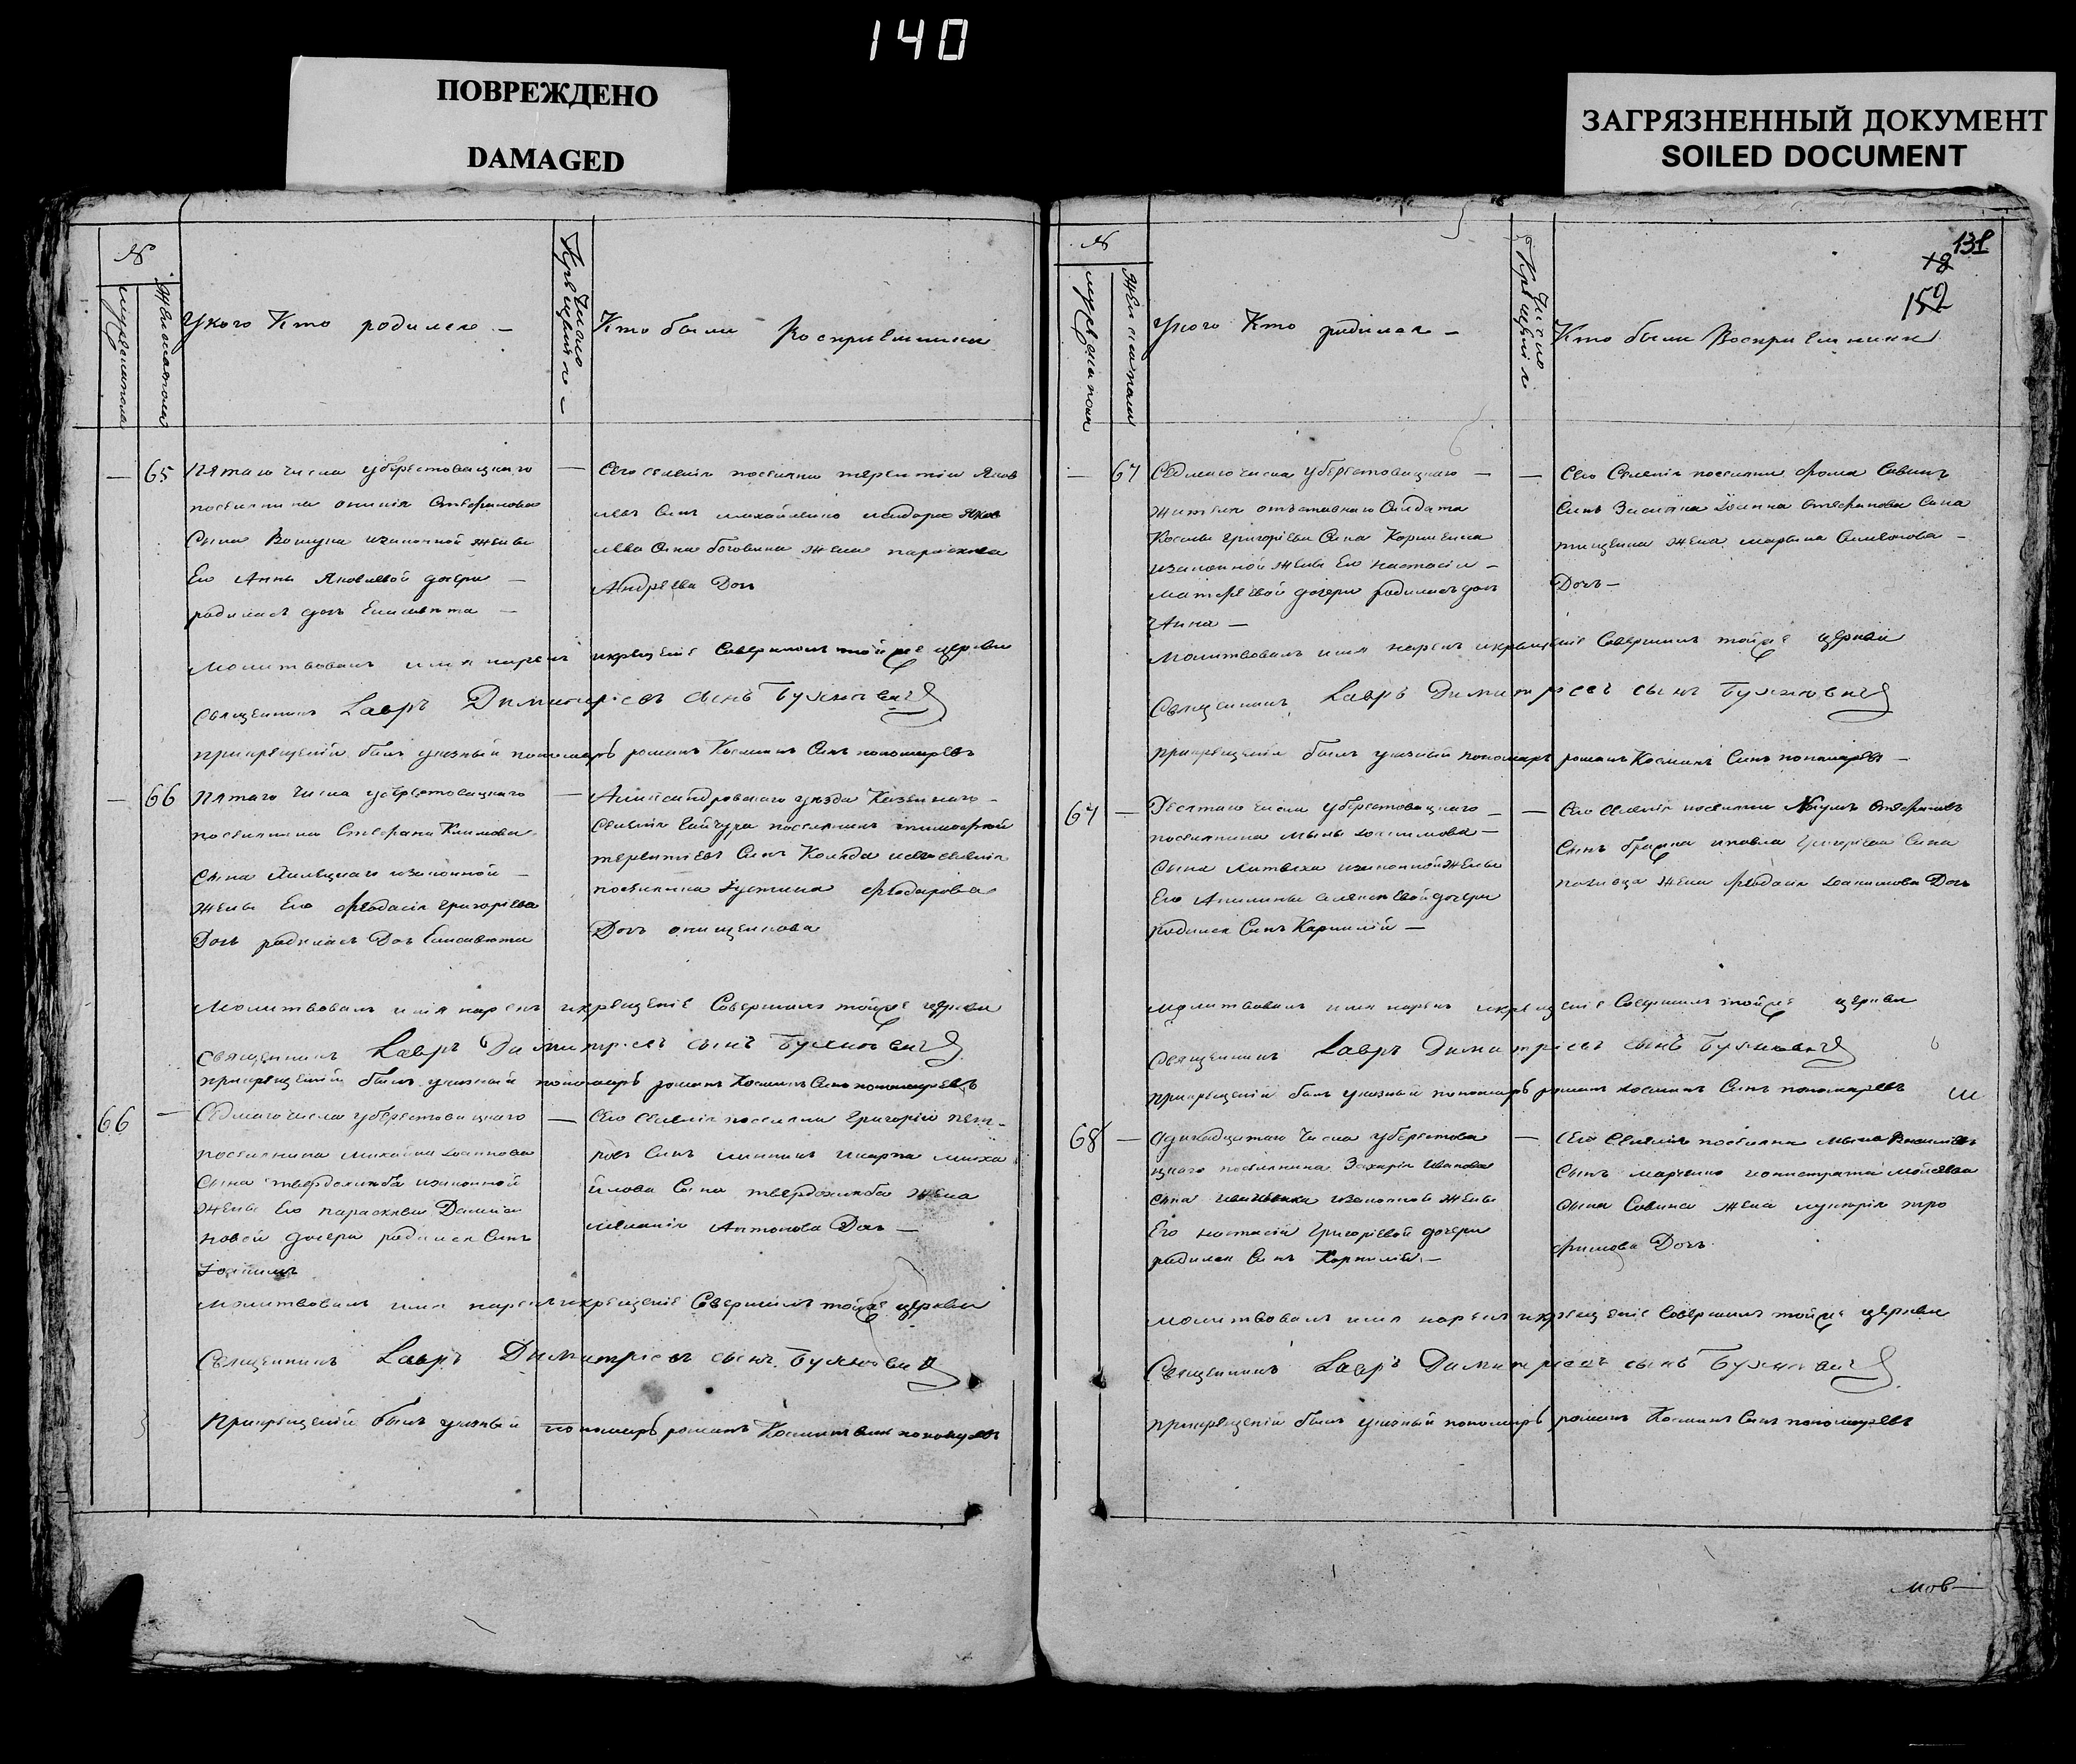 140
ПОВРЕЖДЕНО
DAMAGED
ЗАГРЯЗНЕННЫЙ ДОКУМЕНТ
SOILED DOCUMENT
№
мужеска пола
женска пола
У кого кто родился —
Число крещенія —
Кто были Восприемники
— 65
Пятаго числа уберестовацкаго
поселянина онисія Стефанова
Сына изаконной жены
Его Анны Яковлевой дочери —
родилась дочь Елисавета —
—
Сего селенія поселянин терентій Яков
левъ Синъ михайленко исидора Яков
лева Сина жена параскева
Андреева Дочь
Молитвовалъ имя нарекъ икрещеніе Совершилъ тойже церкви
Священникъ Лавръ Димитріевъ сынъ Бужновичъ
Прикрещеніи былъ указный пономарь романъ Косминъ Синъ пономаревъ
— 66
Пятаго числа уберестовацкаго
поселянина Стефана Климова
Сына изаконной —
жены Его Феодосія григоріева
Дочь родилась Дочь Елисавета
—
Александровскаго уезда
Селенія Гайчура поселянинъ тимофей
терентіевъ Синъ Коляда исего селенія
поселянина Іустина Феодорова
Дочь онищенкова
Молитвовалъ имя нарекъ икрещеніе Совершилъ тойже церкви
Священникъ Лавръ Димитріевъ сынъ Бужновичъ
Прикрещеніи былъ указный пономарь романъ Косминъ Синъ пономаревъ
66 —
Седмаго числа уберестовацкаго
поселянина михаила Іоаннова
Сына твердохлеба изаконной
жены Его параскевы Даміа
новой дочери родился Синъ
Іоакимъ
—
Сего Селенія поселянин григорій пет
ровъ Синъ икарпа миха
йлова Сына твердохлеба жена
меланія Антонова Дочь —
Молитвовалъ имя нарекъ икрещеніе Совершилъ тойже церкви
Священникъ Лавръ Димитріевъ сынъ Бужновичъ
Прикрещеніи былъ указный пономарь романъ Косминъ Синъ пономаревъ
131
152
№
мужеска пола
женска пола
У кого кто родился —
Число крещенія
Кто были Восприемники
— 67
Седмаго числа уберестовацкаго —
жителя отъставнаго Солдата
Космы григоріева Сина
изаконной жены Его настасіи —
матфеевой дочери родилась дочь
Анна —
—
Сего Селенія поселянин Фома Савинъ
Синъ Іоанна Стефанова Сина
тищенка жена марфина Симеонова —
Дочь —
Молитвовалъ имя нарекъ икрещеніе Совершилъ тойже церкви
Священникъ Лавръ Димитріевъ сынъ Бужновичъ
Прикрещеніи былъ указный пономарь романъ Косминъ Синъ пономаревъ —
67 —
Десятаго числа уберестовацкаго —
поселянина Іоакимова —
Сына литвека изаконной жены
Его Акилины алексеевой дочери
родился Синъ Корнилій —
—
Сего Селенія поселянин Наумъ Стефановъ
Сынъ ипавла григоріева Сина
жена Феодосія Іоакимова Дочь
Молитвовалъ имя нарекъ икрещеніе Совершилъ тойже церкви
Священникъ Лавръ Димитріевъ сынъ Бужновичъ
Прикрещеніи былъ указный пономарь романъ косминъ Синъ пономаревъ
68 —
одинадцатаго числа уберестова
цкаго поселянина Захарія Иванова
сына изаконной жены
Его настасіи григоріевой дочери
родился Синъ Корнилій —
—
Сего Селенія поселянин
Сынъ марченко Моисеева
сына Савина жена лукерія тро
фимова Дочь
Молитвовалъ имя нарекъ икрещеніе Совершилъ тойже церкви
Священникъ Лавръ Димитріевъ сынъ Бужновичъ
Прикрещеніи былъ указный пономарь романъ Косминъ Синъ пономаревъ
мов —